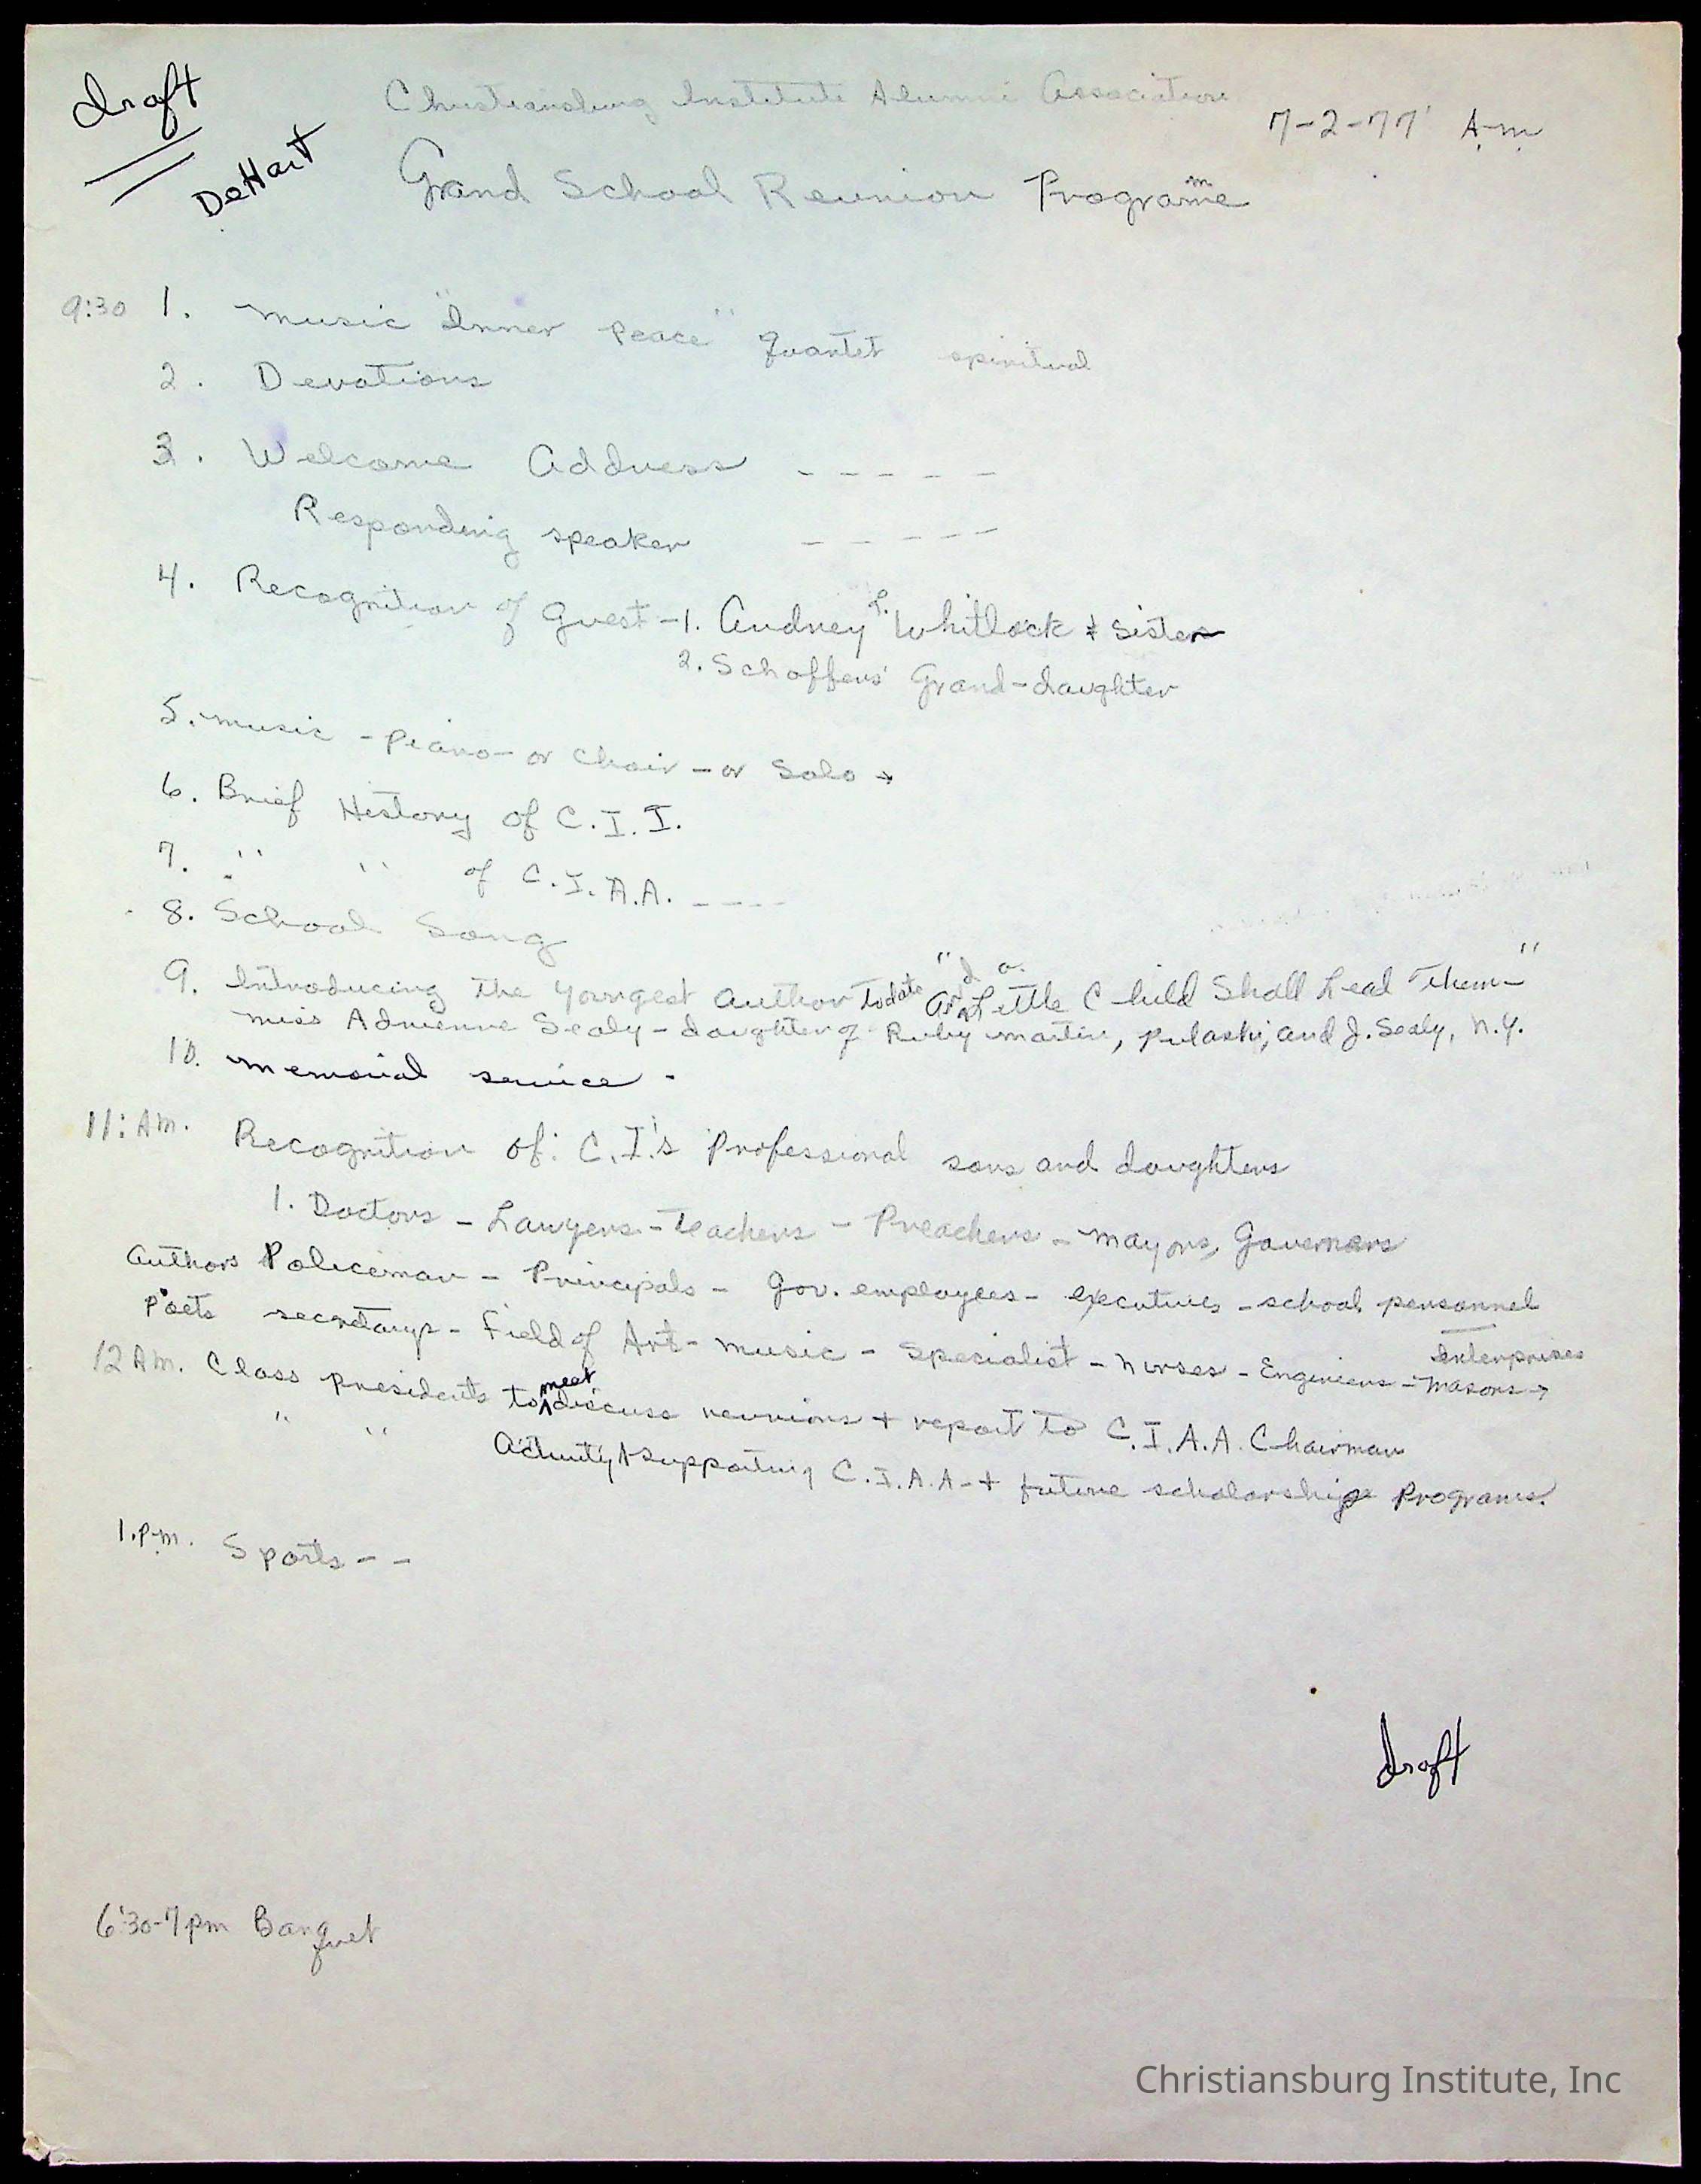 draft
DeHart
Christiansburg Institute Alumni Association
7-2-77' A.m.
Grand School Reunion Programme
9:30 1. Music "Inner peace" Quartet spiritual
2. Devotions
3. Welcome Address - - - - -
Responding speaker - - - - -
4. Recognition of Guest - 1. Audney P. Whitlock & sister
2. Schaffers' Grand-daughter
5. music - piano - or Choir - or Solo →
6. Brief History of C.I.I.
7. " " of C.I.A.A. - - - -
8. School Song
9. Introducing The Youngest Author Todate "And a Little Child Shall Lead Them"
Miss Adrienne Sealy - daughter of Ruby Martin, Pulaski, and J. Sealy, N.Y.
10. memorial service -
11: AM. Recognition of: C.I.'s Professional sons and daughters
1. Doctors - Lawyers - Teachers - Preachers - Mayors, Governors
Authors Policeman - Principals - Gov. employees - executives - school personnel
Poets secretarys - Field of Art - music - Specialist - Nurses - Engineers - Masons → enterprises
12 AM. Class presidents to meet discuss reunions + report to C.I.A.A. Chairman
" " Activity & supporting C.I.A.A - + future scholarship Programs.
1. P.m. Sports - -
draft
6:30-7pm Banquet
Christiansburg Institute, Inc